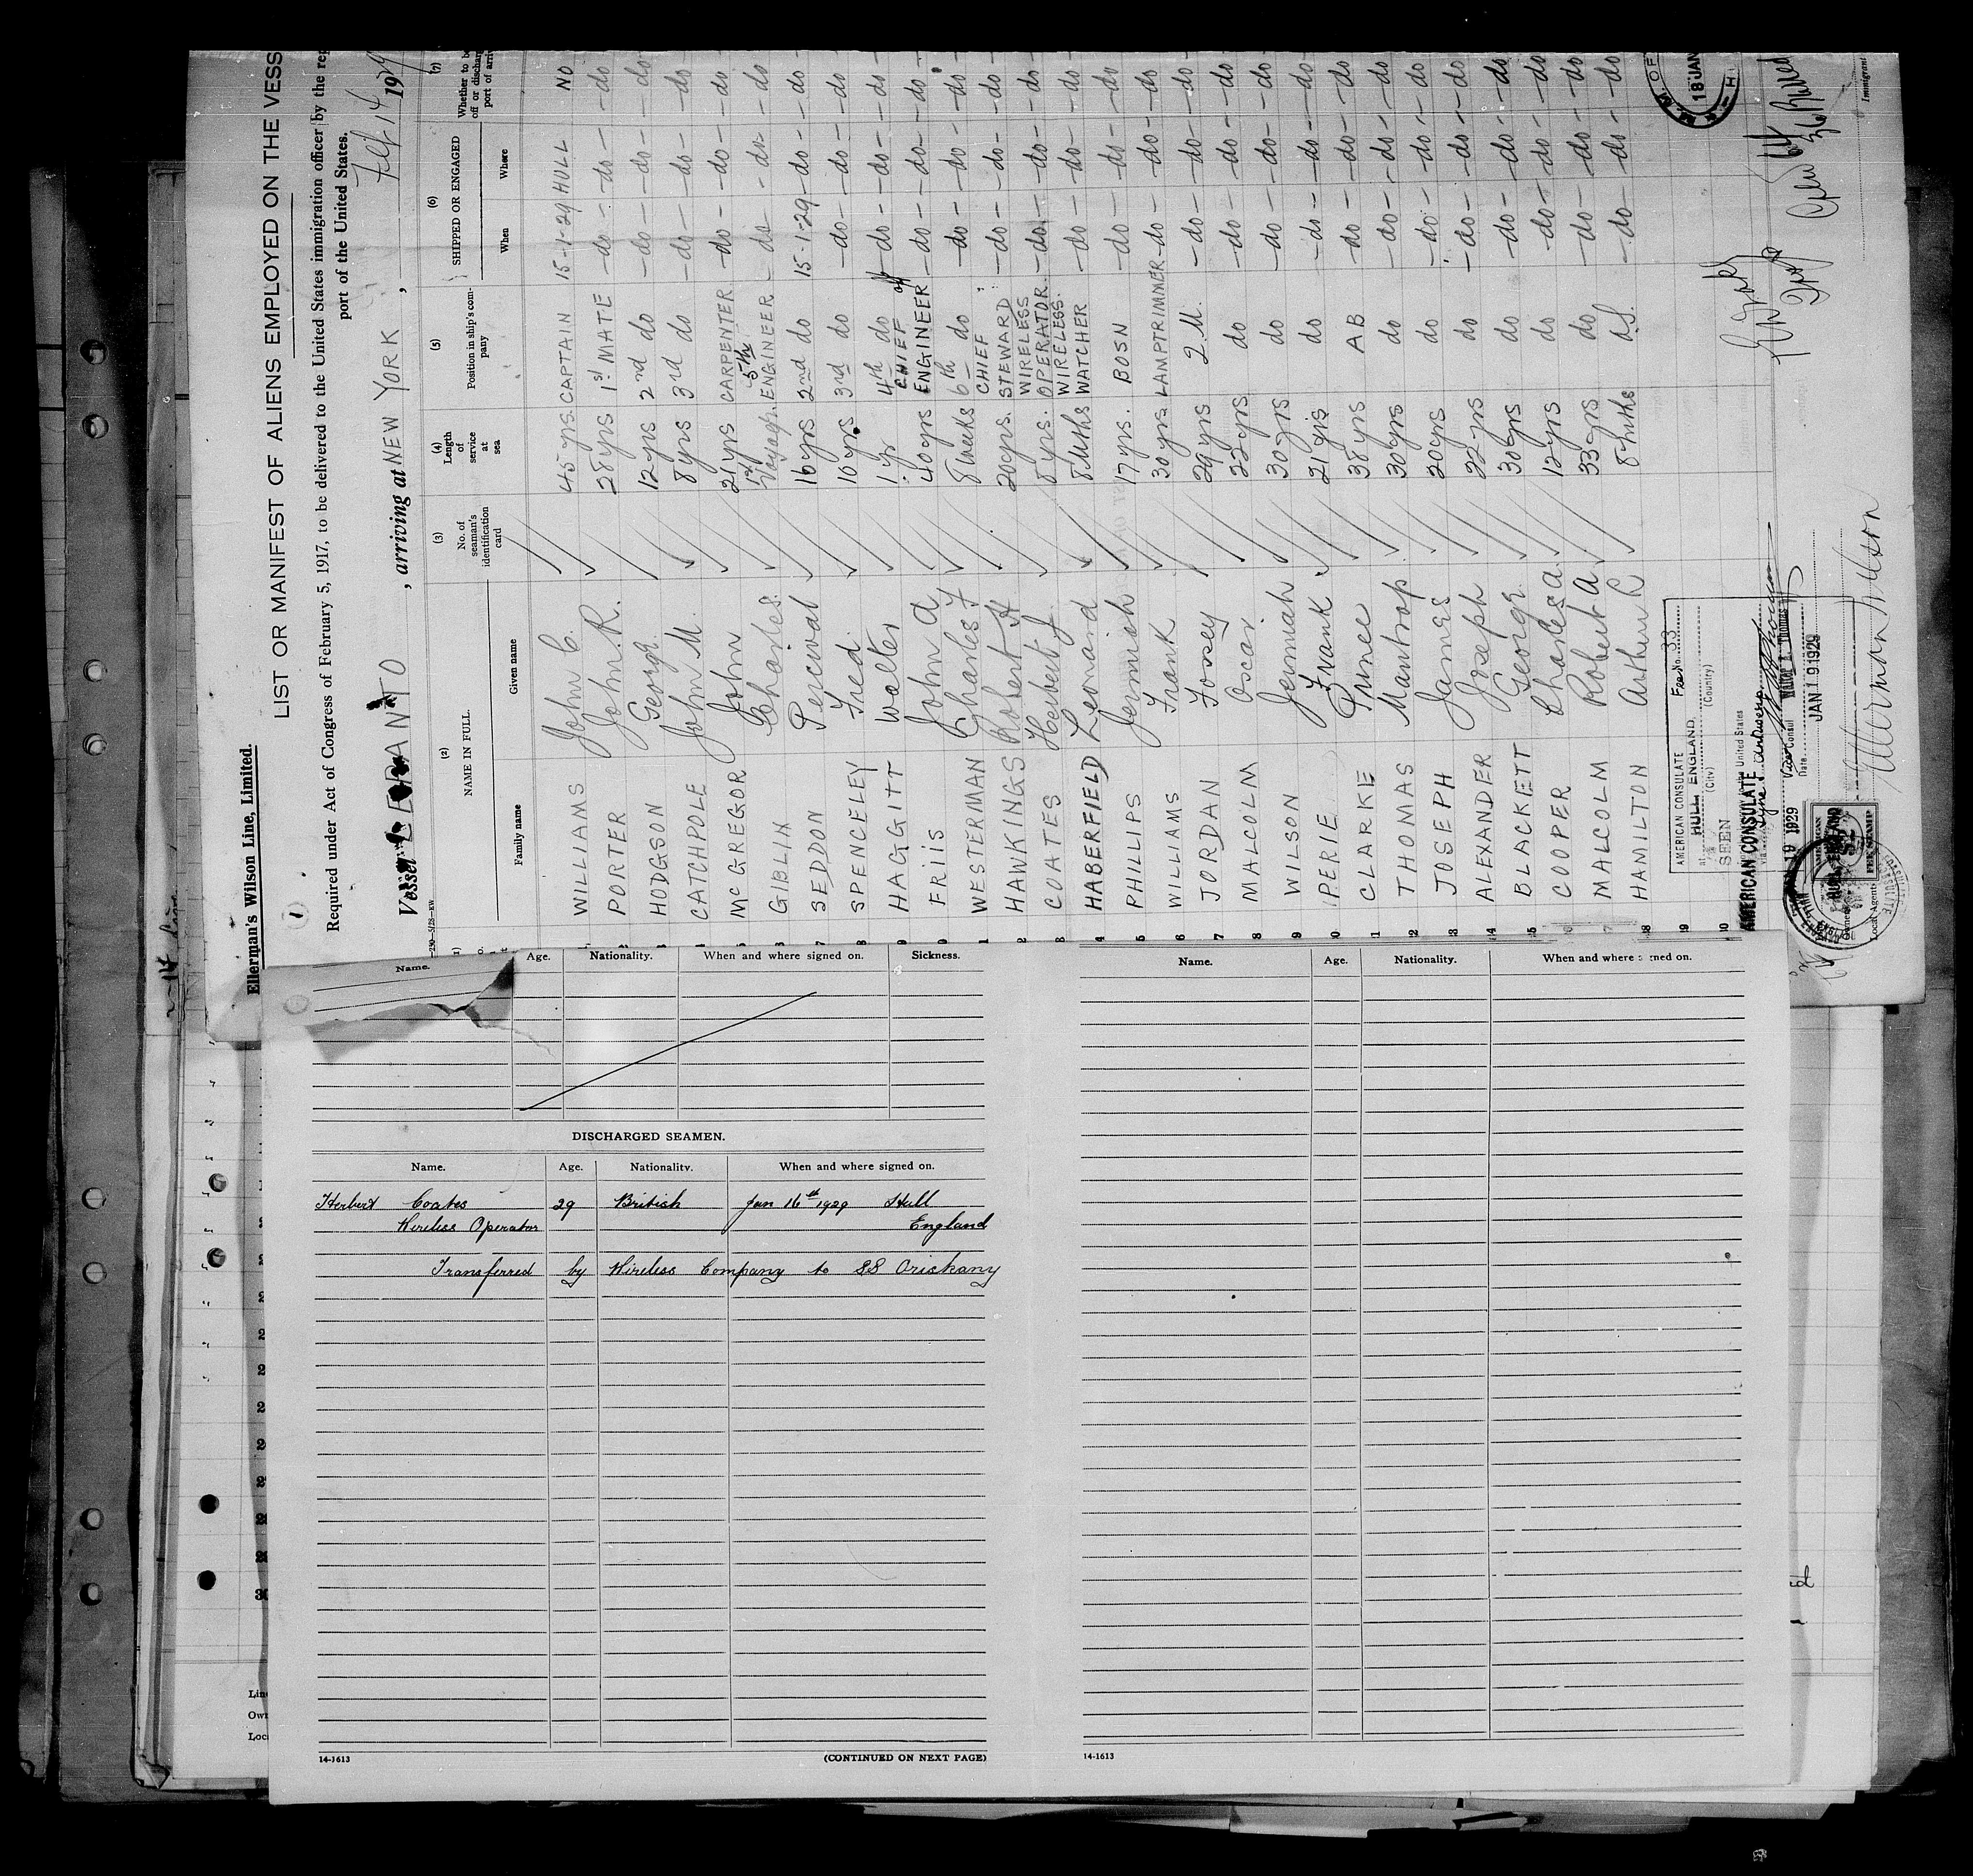 Ellerman's Wilson Line, Limited.
LIST OR MANIFEST OF ALIENS EMPLOYED ON THE VESS
Required under Act of Congress of February 5, 1917, to be delivered to the United States immigration officer by the re
port of the United States.
Vessel , arriving at NEW YORK , 14 1929
(2) NAME IN FULL. (3) No. of seaman's identification card (4) Length of service at sea (5) Position in ship's company (6) SHIPPED OR ENGAGED (7) Whether to be
Family name Given name When Where
WILLIAMS John C. 45 yrs. CAPTAIN 15-1-29 HULL NO
PORTER John R. 28 yrs 1st MATE -do- -do- -do
HODGSON George 12 yrs 2nd do -do- -do- -do
CATCHPOLE John M. 8 yrs 3rd do -do- -do- -do
McGREGOR John 21 yrs CARPENTER -do- -do- -do
GIBLIN Charles 5th ENGINEER -do- -do- -do
SEDDON Percival 16 yrs 2nd do 15-1-29 -do- -do-
SPENCELEY Fred 16 yrs 3rd do -do- -do- -do-
HAGGITT Walter 1 yr 4th do -do- -do- -do-
FRIIS John A 40 yrs CHIEF ENGINEER -do- -do- -do-
WESTERMAN Charles F 8 weeks 6th do -do- -do- -do-
HAWKINGS Robert H 20 yrs. CHIEF STEWARD -do- -do- -do-
COATES Herbert J 8 yrs. WIRELESS OPERATOR -do- -do- -do-
HABERFIELD Leonard 8 Mths WIRELESS WATCHER -do- -do- -do-
PHILLIPS Jermiah 17 yrs. BOSN -do- -do- -do-
WILLIAMS Frank 30 yrs LAMPTRIMMER -do- -do- -do-
JORDAN 29 yrs Q.M. -do- -do- -do-
MALCOLM Oscar 22 yrs do -do- -do- -do-
WILSON Jermiah 30 yrs do -do- -do- -do-
PERIE Frank 21 yrs do -do- -do- -do-
CLARKE Prince 38 yrs AB -do- -do- -do-
THOMAS 30 yrs do -do- -do- -do-
JOSEPH James 20 yrs do -do- -do- -do-
ALEXANDER Joseph 22 yrs do -do- -do- -do-
BLACKETT George 30 yrs do -do- -do- -do-
COOPER Charles A. 12 yrs do -do- -do- -do-
MALCOLM Robert A 33 yrs do -do- -do- -do-
HAMILTON Arthur 8 mths -do- -do- -do-
AMERICAN CONSULATE Fee No. 33
at HULL ENGLAND
(City) (Country)
SEEN
AMERICAN CONSULATE
Vice Consul
Date JAN 19 1929
18 JAN
AMERICAN
FEE STAMP
Local Agents
Name. Age. Nationality. When and where signed on. Sickness.
DISCHARGED SEAMEN.
Name. Age. Nationality. When and where signed on.
Herbert Coates 29 British Jan 16th 1929 Hull
Wireless Operator England
Transferred by Wireless Company to SS Oriskany
14-1613 (CONTINUED ON NEXT PAGE)
Name. Age. Nationality. When and where signed on.
14-1613